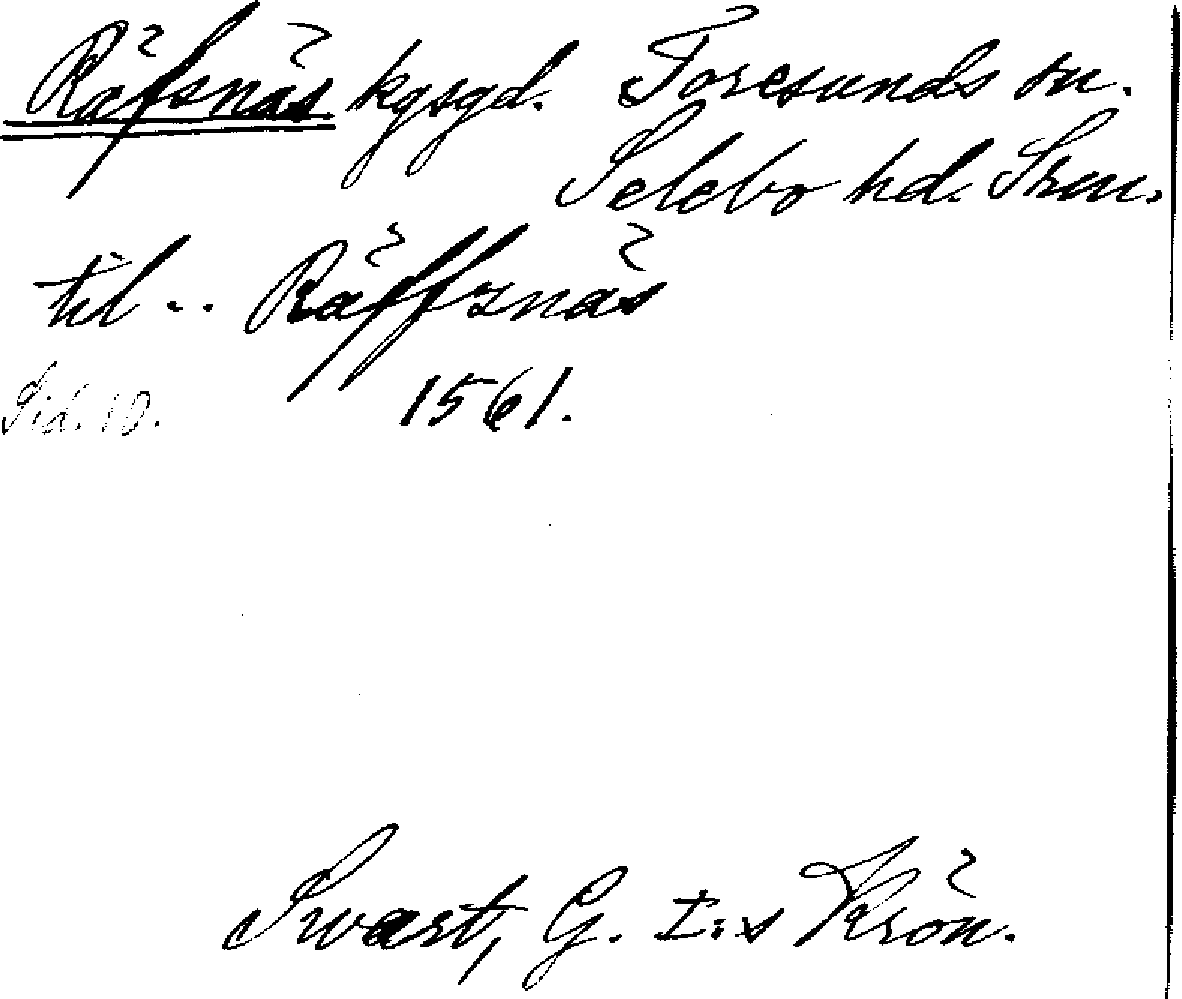 Räfsnäs kgsgd. Toresunds sn.
Selebo hd. Srm.
til .. Räffsnäs
Sid. 10. 1561.
Swart, G. I:s Krön.